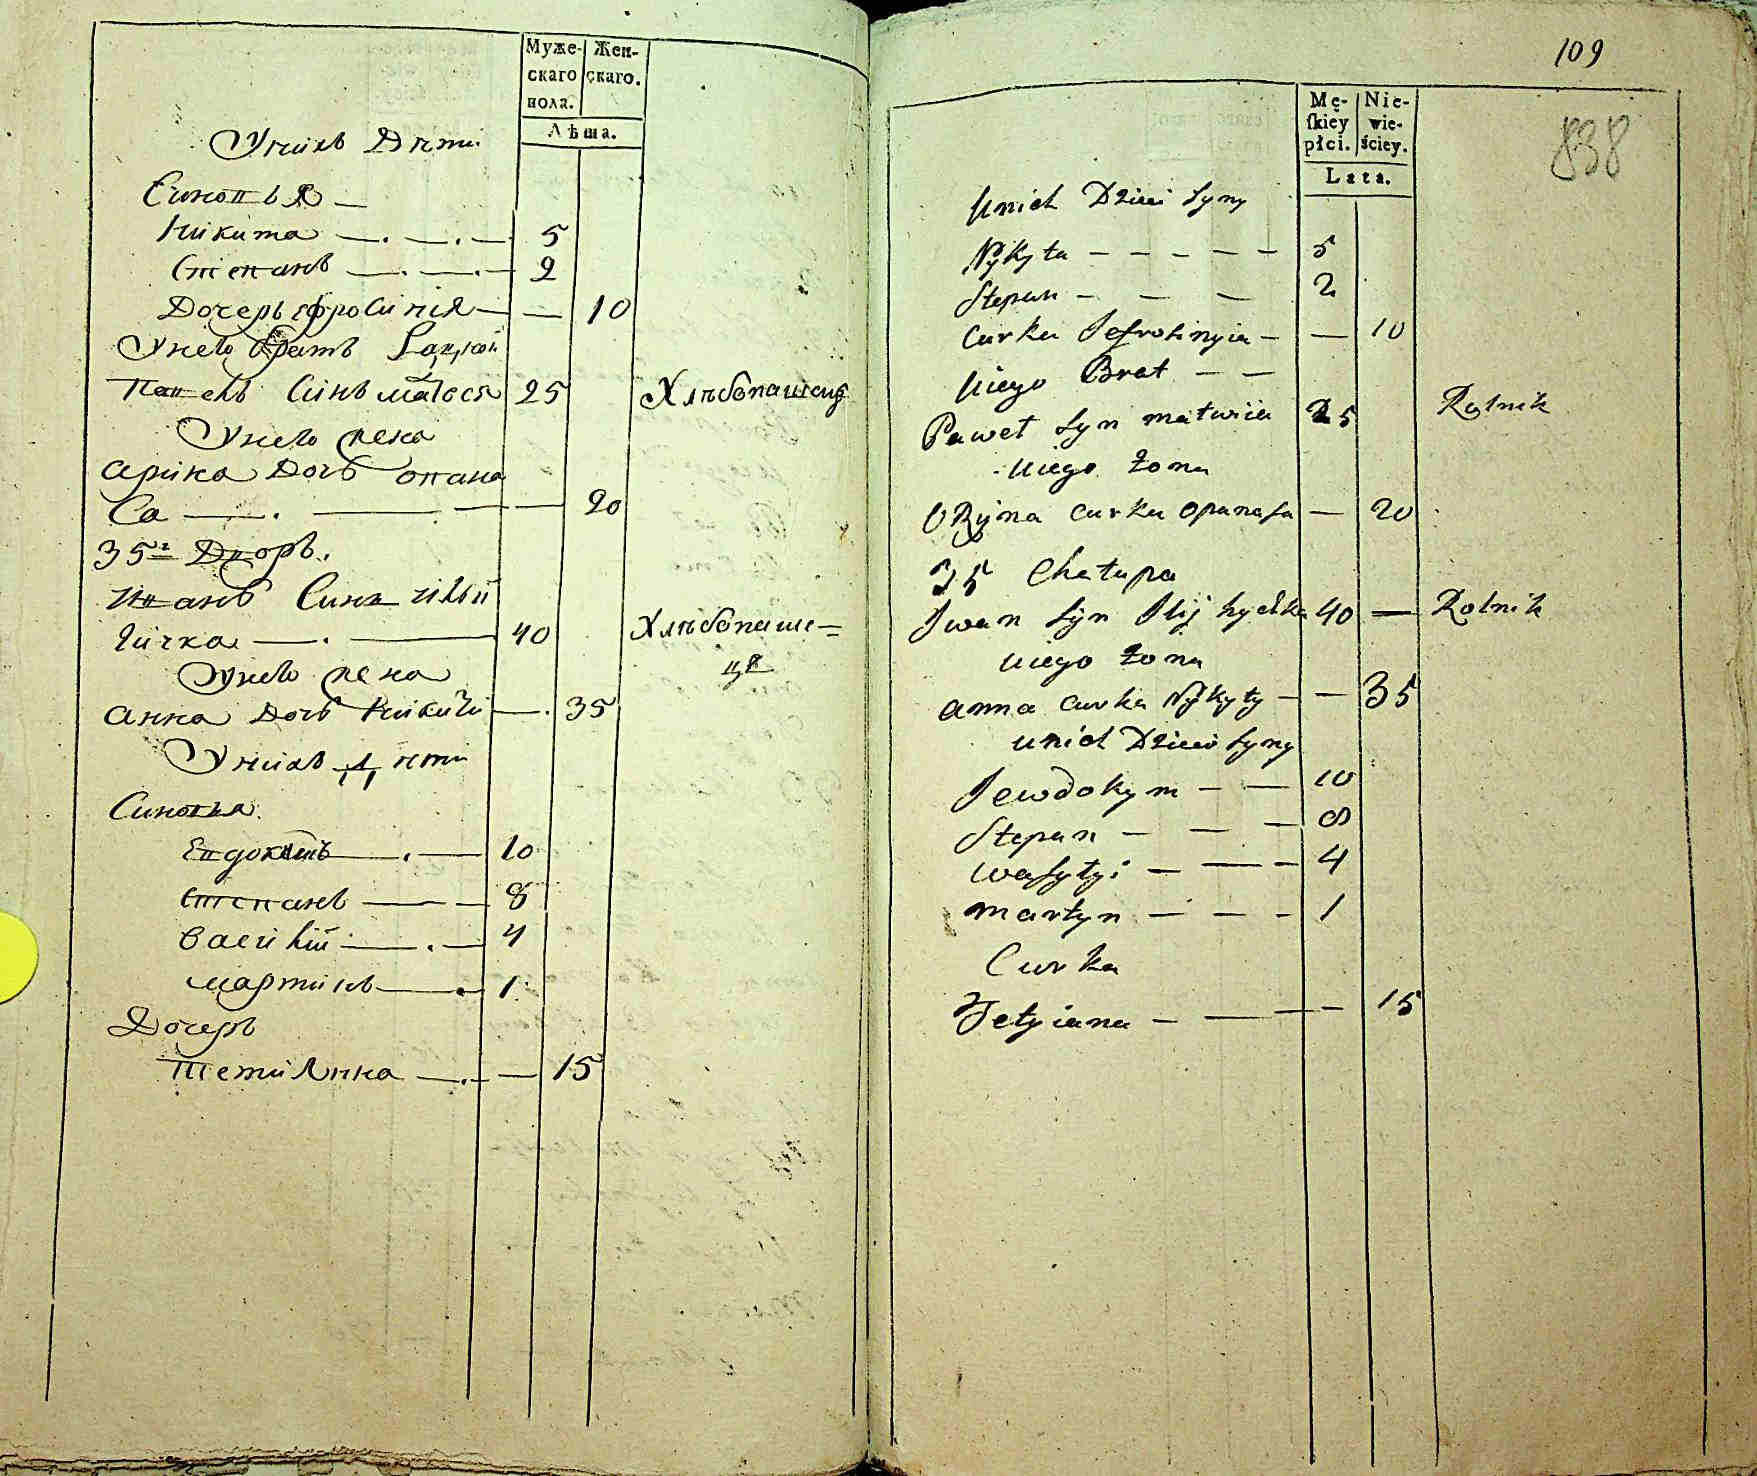 Муже-
скаго
пола.
Жен-
скаго.
Лѣта.
Унихъ Дѣти
Синовья —
Никита — . — . — 5
Степанъ — . — . — 2
Дочерь Ефросинія — — 10
Унего братъ
Павелъ Синъ 25 Хлѣбопашецъ
Унего жена
Арина Дочь опана
са — . — — — 20
35й Дворъ.
Иванъ Синъ Илій
Гичка — . — 40 Хлѣбопаше=
цъ
Унего жена
Анна Дочь Никити — . 35
Унихъ Дѣти
Синовья.
Евдокимъ — . — 10
Степанъ — — 8
Василій — . — 4
Мартинъ — . — 1
Дочерь
Тетиянна — . — — 15
109
838
Mę-
skiey
płci.
Nie-
wie-
ściey.
Lata.
Unich Dzieci Syny
Nykyta — — — — — 5
Stepan — — — 2
Curka Jefrosinyia — — 10
Uiego Brat — —
Paweł Syn matwiia 25 Rolnik
Uiego żona
ORyna Curka Opanasa — 20
35 Chałupa
Jwan Syn Jlij hyczka 40 — Rolnik
Uiego żona
Anna Curka Nykyty — — 35
Unich Dzieci Syny
Jewdokym — — 10
Stepan — — — 8
Wasylyi — — — 4
Martyn — — — 1
Curka
Tetyiana — — — — 15